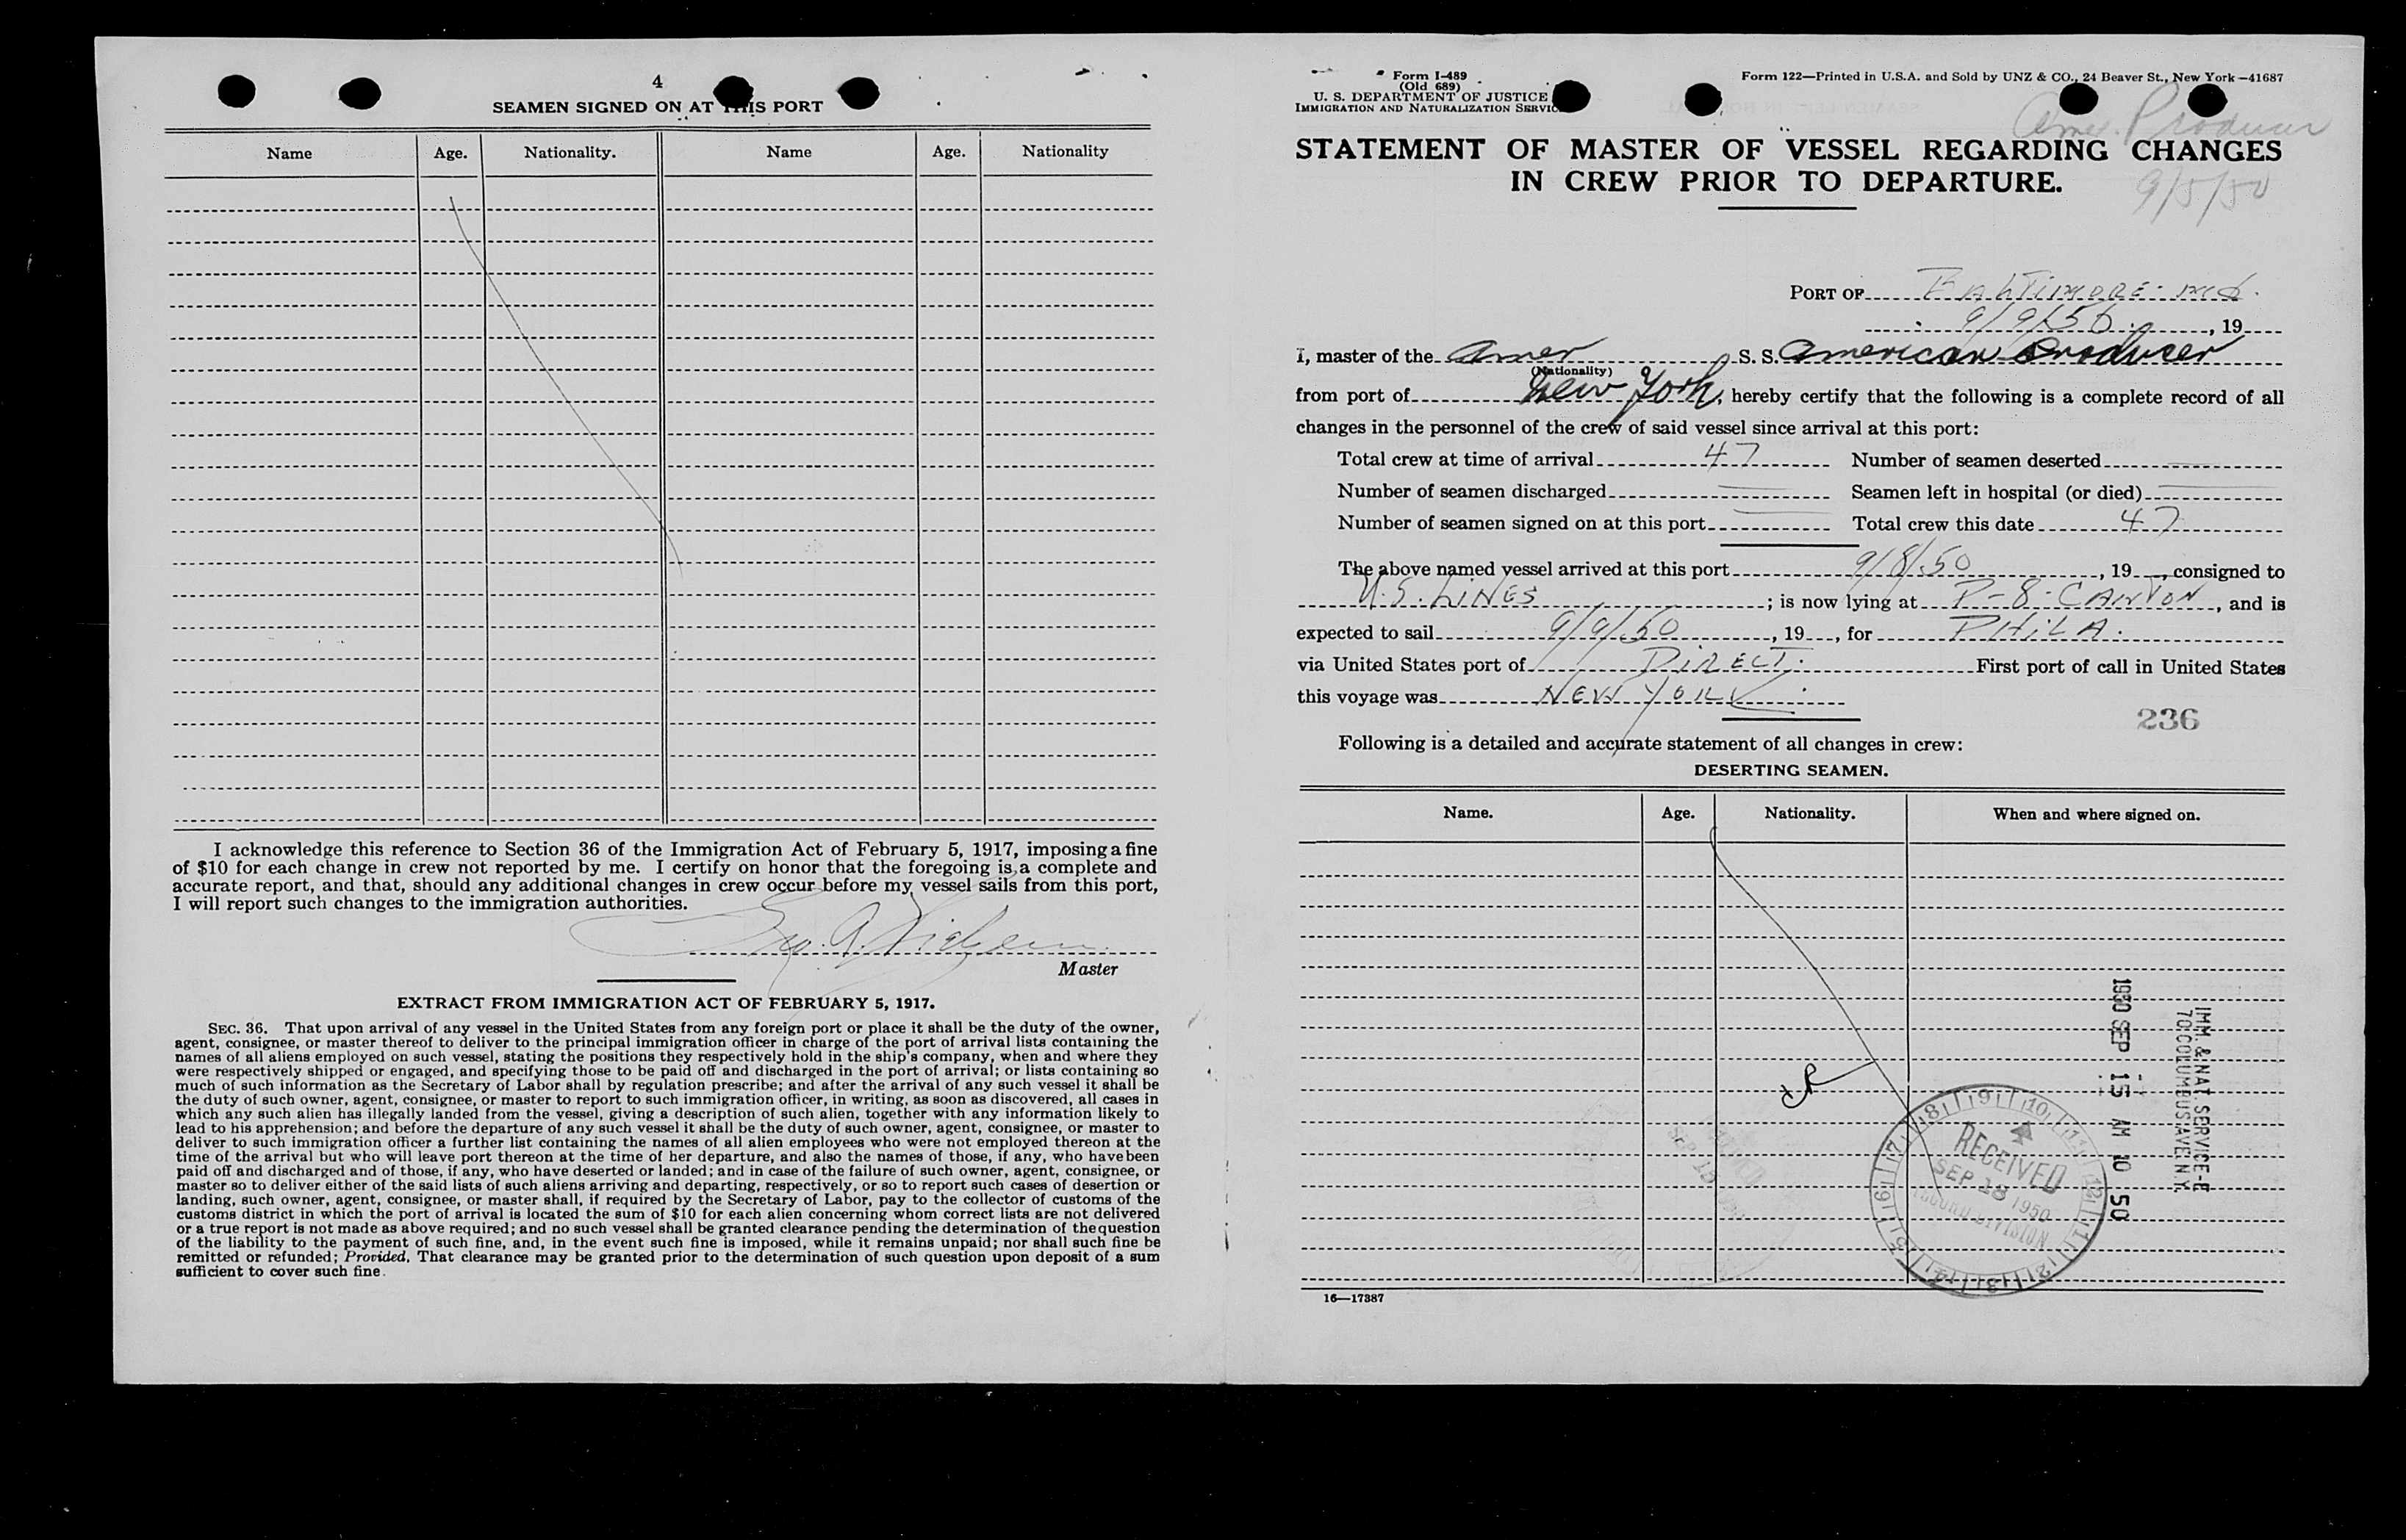 4
SEAMEN SIGNED ON AT THIS PORT
Name Age. Nationality. Name Age. Nationality
I acknowledge this reference to Section 36 of the Immigration Act of February 5, 1917, imposing a fine
of $10 for each change in crew not reported by me. I certify on honor that the foregoing is a complete and
accurate report, and that, should any additional changes in crew occur before my vessel sails from this port,
I will report such changes to the immigration authorities.
Master
EXTRACT FROM IMMIGRATION ACT OF FEBRUARY 5, 1917.
SEC. 36. That upon arrival of any vessel in the United States from any foreign port or place it shall be the duty of the owner,
agent, consignee, or master thereof to deliver to the principal immigration officer in charge of the port of arrival lists containing the
names of all aliens employed on such vessel, stating the positions they respectively hold in the ship's company, when and where they
were respectively shipped or engaged, and specifying those to be paid off and discharged in the port of arrival; or lists containing so
much of such information as the Secretary of Labor shall by regulation prescribe; and after the arrival of any such vessel it shall be
the duty of such owner, agent, consignee, or master to report to such immigration officer, in writing, as soon as discovered, all cases in
which any such alien has illegally landed from the vessel, giving a description of such alien, together with any information likely to
lead to his apprehension; and before the departure of any such vessel it shall be the duty of such owner, agent, consignee, or master to
deliver to such immigration officer a further list containing the names of all alien employees who were not employed thereon at the
time of the arrival but who will leave port thereon at the time of her departure, and also the names of those, if any, who have been
paid off and discharged and of those, if any, who have deserted or landed; and in case of the failure of such owner, agent, consignee, or
master so to deliver either of the said lists of such aliens arriving and departing, respectively, or so to report such cases of desertion or
landing, such owner, agent, consignee, or master shall, if required by the Secretary of Labor, pay to the collector of customs of the
customs district in which the port of arrival is located the sum of $10 for each alien concerning whom correct lists are not delivered
or a true report is not made as above required; and no such vessel shall be granted clearance pending the determination of the question
of the liability to the payment of such fine, and, in the event such fine is imposed, while it remains unpaid; nor shall such fine be
remitted or refunded; Provided, That clearance may be granted prior to the determination of such question upon deposit of a sum
sufficient to cover such fine.
Form I-489
(Old 689)
U. S. DEPARTMENT OF JUSTICE
IMMIGRATION AND NATURALIZATION SERVICE
Form 122—Printed in U.S.A. and Sold by UNZ & CO., 24 Beaver St., New York—41687
Amer. Producer
9/5/50
STATEMENT OF MASTER OF VESSEL REGARDING CHANGES
IN CREW PRIOR TO DEPARTURE.
PORT OF BALTIMORE. Md.
9/9/50, 19
I, master of the Amer S. S. American Producer
(Nationality)
from port of New York, hereby certify that the following is a complete record of all
changes in the personnel of the crew of said vessel since arrival at this port:
Total crew at time of arrival 47 Number of seamen deserted
Number of seamen discharged Seamen left in hospital (or died)
Number of seamen signed on at this port Total crew this date 47
The above named vessel arrived at this port 9/8/50, 19 , consigned to
U.S. LINES ; is now lying at P-8-CANTON, and is
expected to sail 9/9/50, 19 , for PHILA.
via United States port of DIRECT. First port of call in United States
this voyage was NEW YORK
236
Following is a detailed and accurate statement of all changes in crew:
DESERTING SEAMEN.
Name. Age. Nationality. When and where signed on.
IMM. & NAT SERVICE-E
70 COLUMBUS AVE N.Y.
1950 SEP 15 AM 10 50
RECEIVED
SEP 18 1950
RECORD DIVISION
16—17387